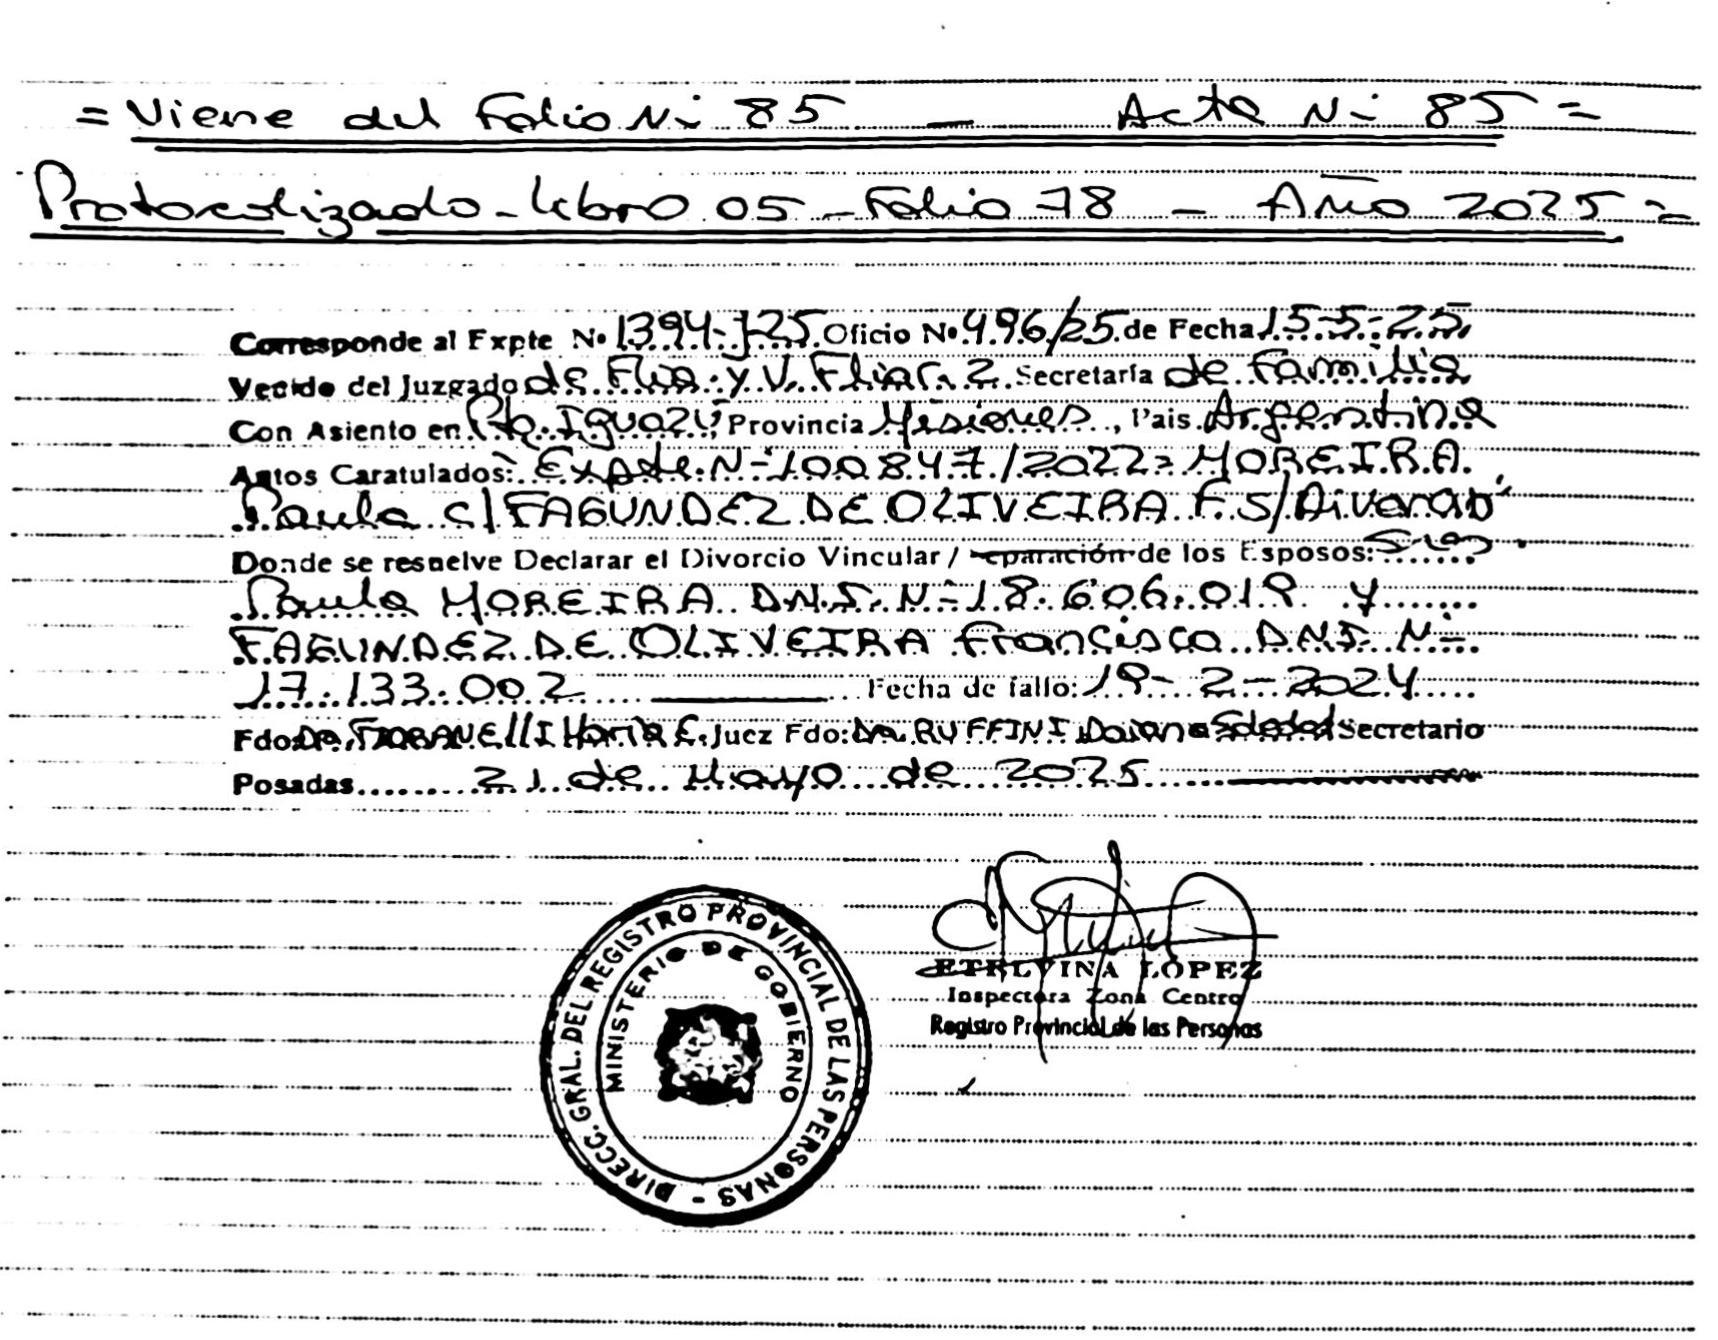 = Viene del Folio N: 85 — Acta N: 85 =
Protocolizado - Libro 05 - Folio 78 - Año 2025 =
Corresponde al Expte Nº 1394-J-25 Oficio Nº 496/25 de Fecha 15-5-25
Venido del Juzgado de Flia. y V. Fliar. 2 Secretaría de Familia
Con Asiento en Pto. Iguazú, Provincia Misiones, Pais Argentina
Autos Caratulados: Expte. N: 100847/2022 = MOREIRA
Paula C/ FAGUNDEZ DE OLIVEIRA F. S/ Divorcio
Donde se resuelve Declarar el Divorcio Vincular / eparación de los Esposos:
Paula MOREIRA D.N.I. N: 18.606.019 y
FAGUNDEZ DE OLIVEIRA Francisco D.N.I. N:
17.133.002 Fecha de fallo: 19-2-2024
Fdo: Dra. FIORANELLI María E. Juez Fdo: Dra. RUFFINI Daiana Soledad Secretario
Posadas 21 de Mayo de 2025
DIRECC. GRAL. DEL REGISTRO PROVINCIAL DE LAS PERSONAS -
MINISTERIO DE GOBIERNO
ETELVINA LOPEZ
Inspectora Zona Centro
Registro Provincial de las Personas